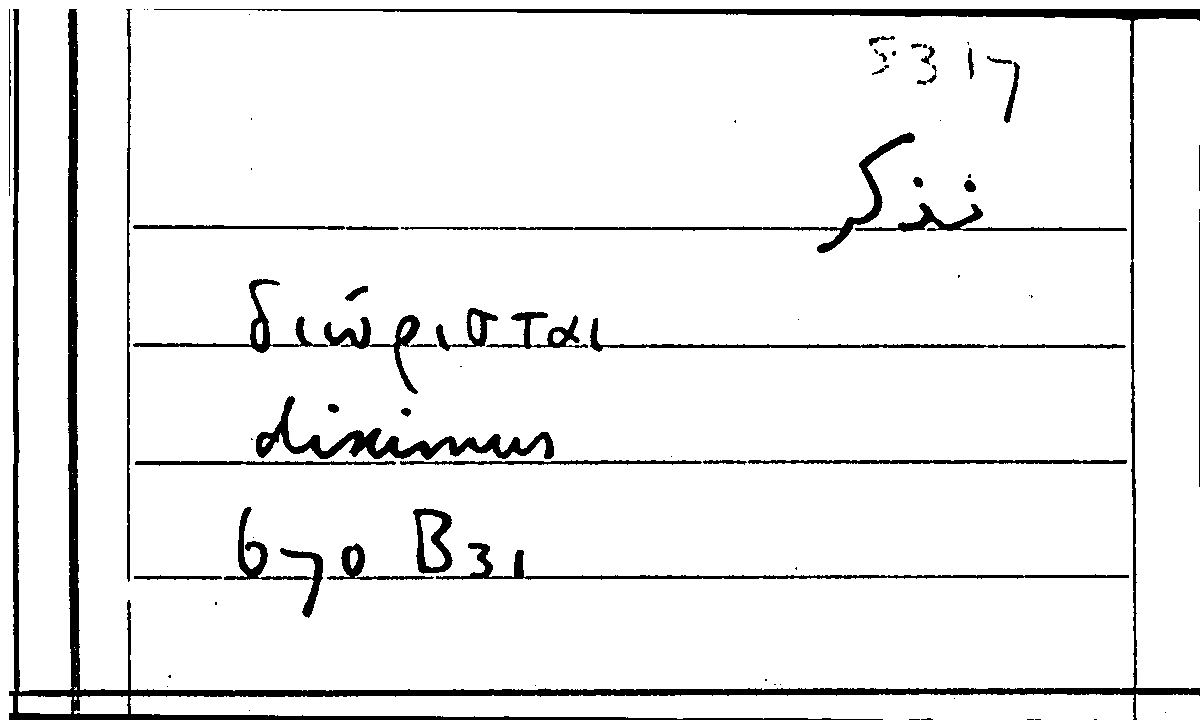 5317
نذكر
διώρισται
diximus
670 B31